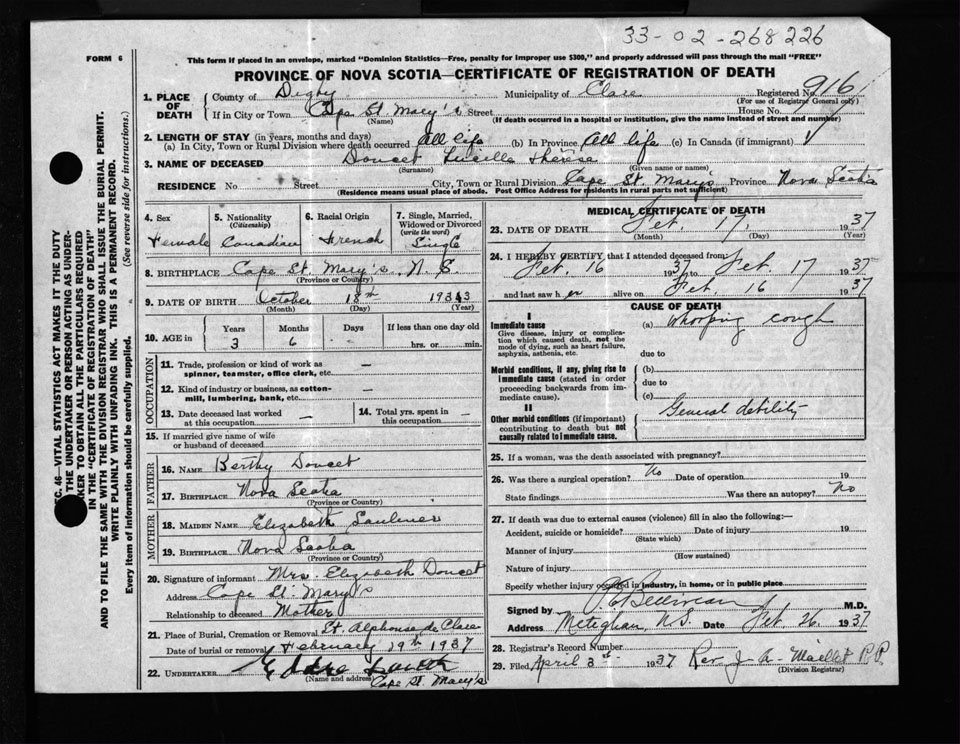 33-02-268226
FORM 6
This form if placed in an envelope, marked "Dominion Statistics—Free, penalty for improper use $300," and properly addressed will pass through the mail "FREE"
PROVINCE OF NOVA SCOTIA—CERTIFICATE OF REGISTRATION OF DEATH
1. PLACE OF DEATH
County of Digby Municipality of Clare Registered No. 916
(For use of Registrar General only)
If in City or Town Cape St. Mary's Street House No.
(Name) (If death occurred in a hospital or institution, give the name instead of street and number)
2. LENGTH OF STAY (in years, months and days)
(a) In City, Town or Rural Division where death occurred All life (b) In Province All life (c) In Canada (if immigrant)
3. NAME OF DECEASED Doucet Lucille Thérèse
(Surname) (Given name or names)
RESIDENCE No Street City, Town or Rural Division Cape St. Mary's Province Nova Scotia
(Residence means usual place of abode. Post Office Address for residents in rural parts not sufficient)
4. Sex
Female
5. Nationality
(Citizenship)
Canadian
6. Racial Origin
French
7. Single, Married, Widowed or Divorced
(write the word)
Single
8. BIRTHPLACE Cape St. Mary's, N. S.
(Province or Country)
9. DATE OF BIRTH October 18th 1933
(Month) (Day) (Year)
10. AGE in
Years Months Days If less than one day old
3 6 hrs. or min.
OCCUPATION
11. Trade, profession or kind of work as
spinner, teamster, office clerk, etc. —
12. Kind of industry or business, as cotton-
mill, lumbering, bank, etc. —
13. Date deceased last worked
at this occupation —
14. Total yrs. spent in
this occupation —
15. If married give name of wife
or husband of deceased
FATHER
16. NAME Berthy Doucet
17. BIRTHPLACE Nova Scotia
(Province or Country)
MOTHER
18. MAIDEN NAME Elizabeth Saulnier
19. BIRTHPLACE Nova Scotia
(Province or Country)
20. Signature of informant Mrs. Elizabeth Doucet
Address Cape St. Mary's
Relationship to deceased Mother
21. Place of Burial, Cremation or Removal St. Alphonse de Clare
Date of burial or removal February 19th 1937
22. UNDERTAKER
(Name and address) Cape St. Mary's
MEDICAL CERTIFICATE OF DEATH
23. DATE OF DEATH Feb. 17, 1937
(Month) (Day) (Year)
24. I HEREBY CERTIFY that I attended deceased from
Feb. 16 1937 to Feb. 17 1937
and last saw her alive on Feb. 16 1937
CAUSE OF DEATH
I
Immediate cause
Give disease, injury or complica-
tion which caused death, not the
mode of dying, such as heart failure,
asphyxia, asthenia, etc.
(a) Whooping cough
due to
Morbid conditions, if any, giving rise to
immediate cause (stated in order
proceeding backwards from im-
mediate cause).
(b)
due to
(c)
II
Other morbid conditions (if important)
contributing to death but not
causally related to immediate cause.
General debility
25. If a woman, was the death associated with pregnancy?
26. Was there a surgical operation? No Date of operation 19
State findings Was there an autopsy? No
27. If death was due to external causes (violence) fill in also the following:—
Accident, suicide or homicide? Date of injury 19
(State which)
Manner of injury
(How sustained)
Nature of injury
Specify whether injury occurred in industry, in home, or in public place
Signed by Belliveau M.D.
Address Meteghan, N.S. Date Feb. 26. 1937
28. Registrar's Record Number
29. Filed April 3rd 1937 Rev. J. A. Maillet P.P.
(Division Registrar)
SEC. 46—VITAL STATISTICS ACT MAKES IT THE DUTY
OF THE UNDERTAKER OR PERSON ACTING AS UNDER-
TAKER TO OBTAIN ALL THE PARTICULARS REQUIRED
IN THE "CERTIFICATE OF REGISTRATION OF DEATH"
AND TO FILE THE SAME WITH THE DIVISION REGISTRAR WHO SHALL ISSUE THE BURIAL PERMIT.
WRITE PLAINLY WITH UNFADING INK. THIS IS A PERMANENT RECORD.
Every item of information should be carefully supplied. (See reverse side for instructions.)